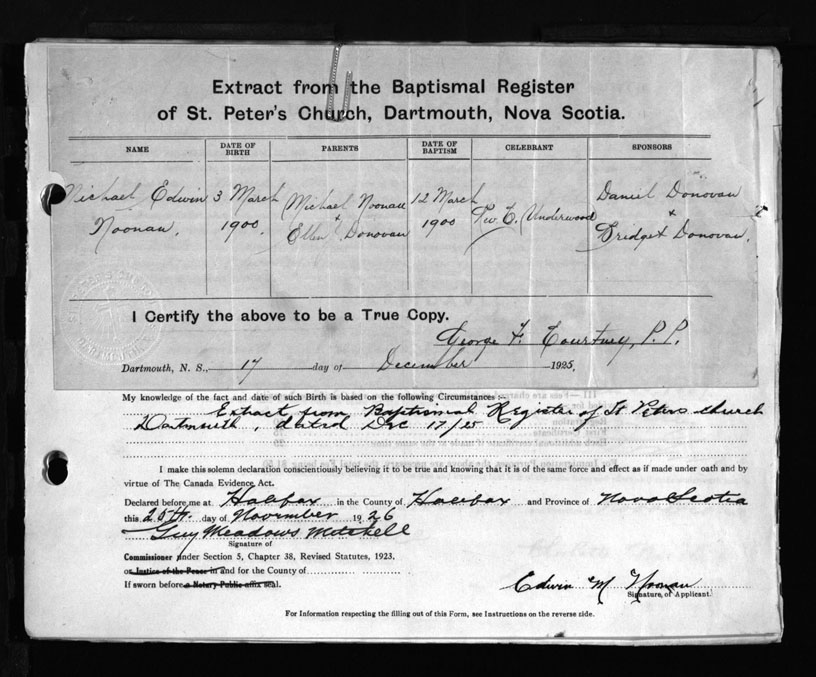 Extract from the Baptismal Register
of St. Peter's Church, Dartmouth, Nova Scotia.
NAME DATE OF BIRTH PARENTS DATE OF BAPTISM CELEBRANT SPONSORS
Michael Edwin 3 March Michael Noonan 12 March Daniel Donovan
Noonan, 1900. & 1900 E. Underwood &
Ellen Donovan Bridget Donovan.
I Certify the above to be a True Copy.
George F. Courtney, P. P.
Dartmouth, N. S., 17 day of December 1925.
My knowledge of the fact and date of such Birth is based on the following Circumstances :-
Extract from Baptismal Register of St Peters church
Dartmouth, dated Dec 17/25
I make this solemn declaration conscientiously believing it to be true and knowing that it is of the same force and effect as if made under oath and by
virtue of The Canada Evidence Act.
Declared before me at Halifax in the County of Halifax and Province of Nova Scotia
this 25th day of November 1926
Guy Meadows Mitchell
Signature of
Commissioner under Section 5, Chapter 38, Revised Statutes, 1923,
or Justice of the Peace in and for the County of
If sworn before a Notary Public affix seal.
Edwin M Noonan
Signature of Applicant.
For Information respecting the filling out of this Form, see Instructions on the reverse side.